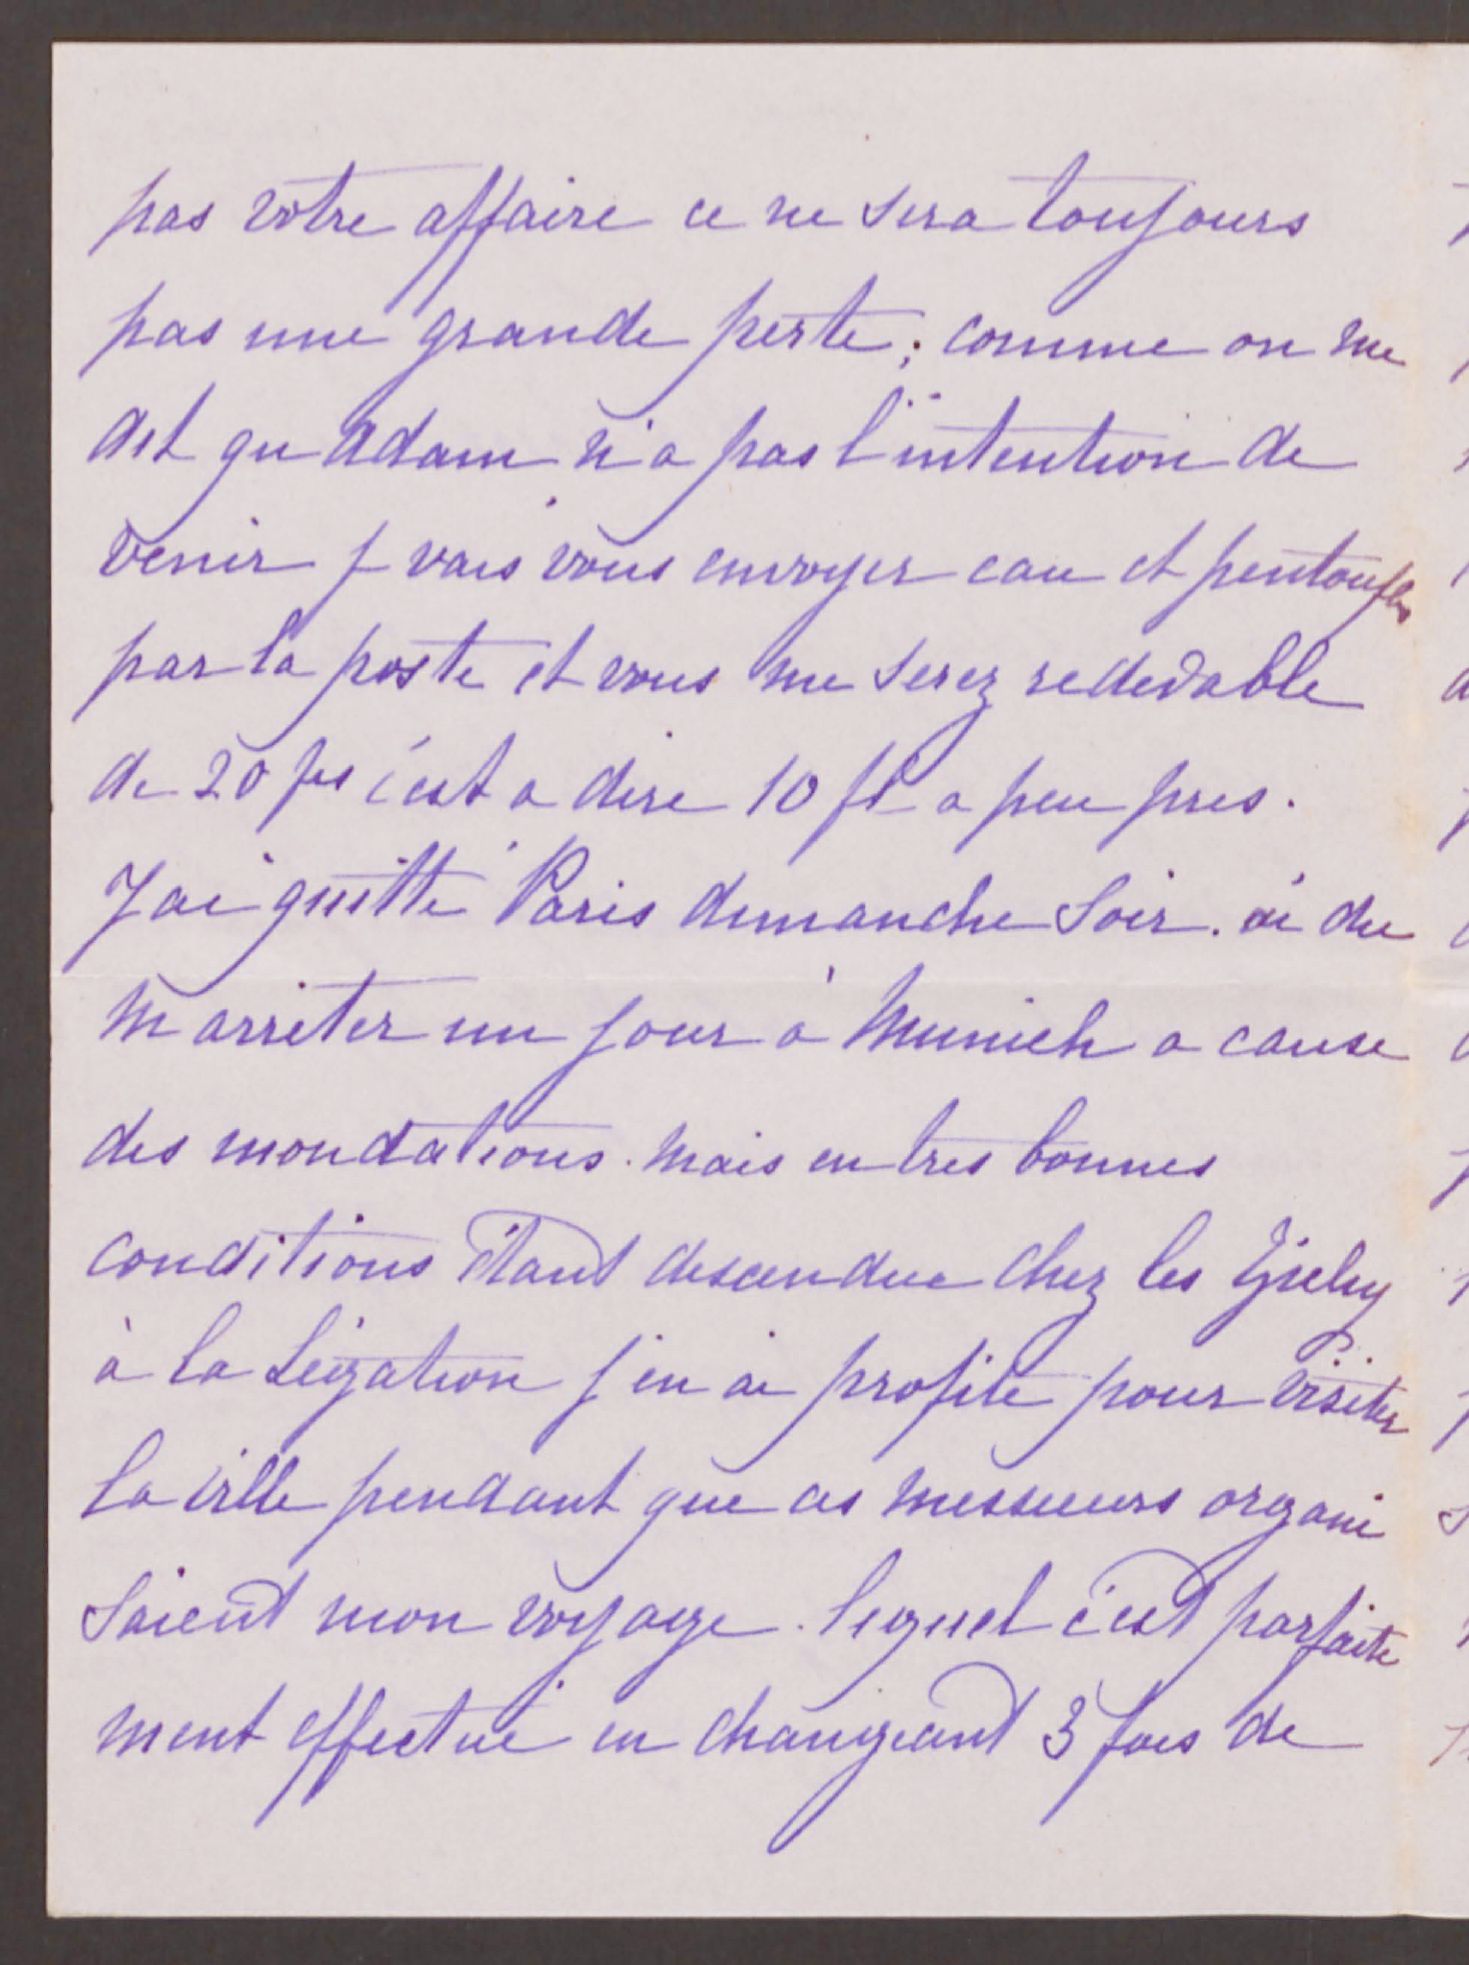 pas votre affaire ce ne sera toujours
pas une grande perte; comme on me
dit qu Adam n'a pas l'intention de
venir j vais vous envoyer eau et pentoufles
par la poste et vous me serez redevable
de 20 frs c'est a dire 10 fl a peu pres.
J ai quitté Paris dimanche soir. ai du
m arreter un jour à Munich a cause
des inondations. mais en tres bonnes
conditions étant descendue chez les Zichy
à la Légation j'en ai profité pour visiter
la ville pendant que ces messieurs organi
saient mon voyage. lequel c'est parfaite
ment effectué en changeant 3 fois de